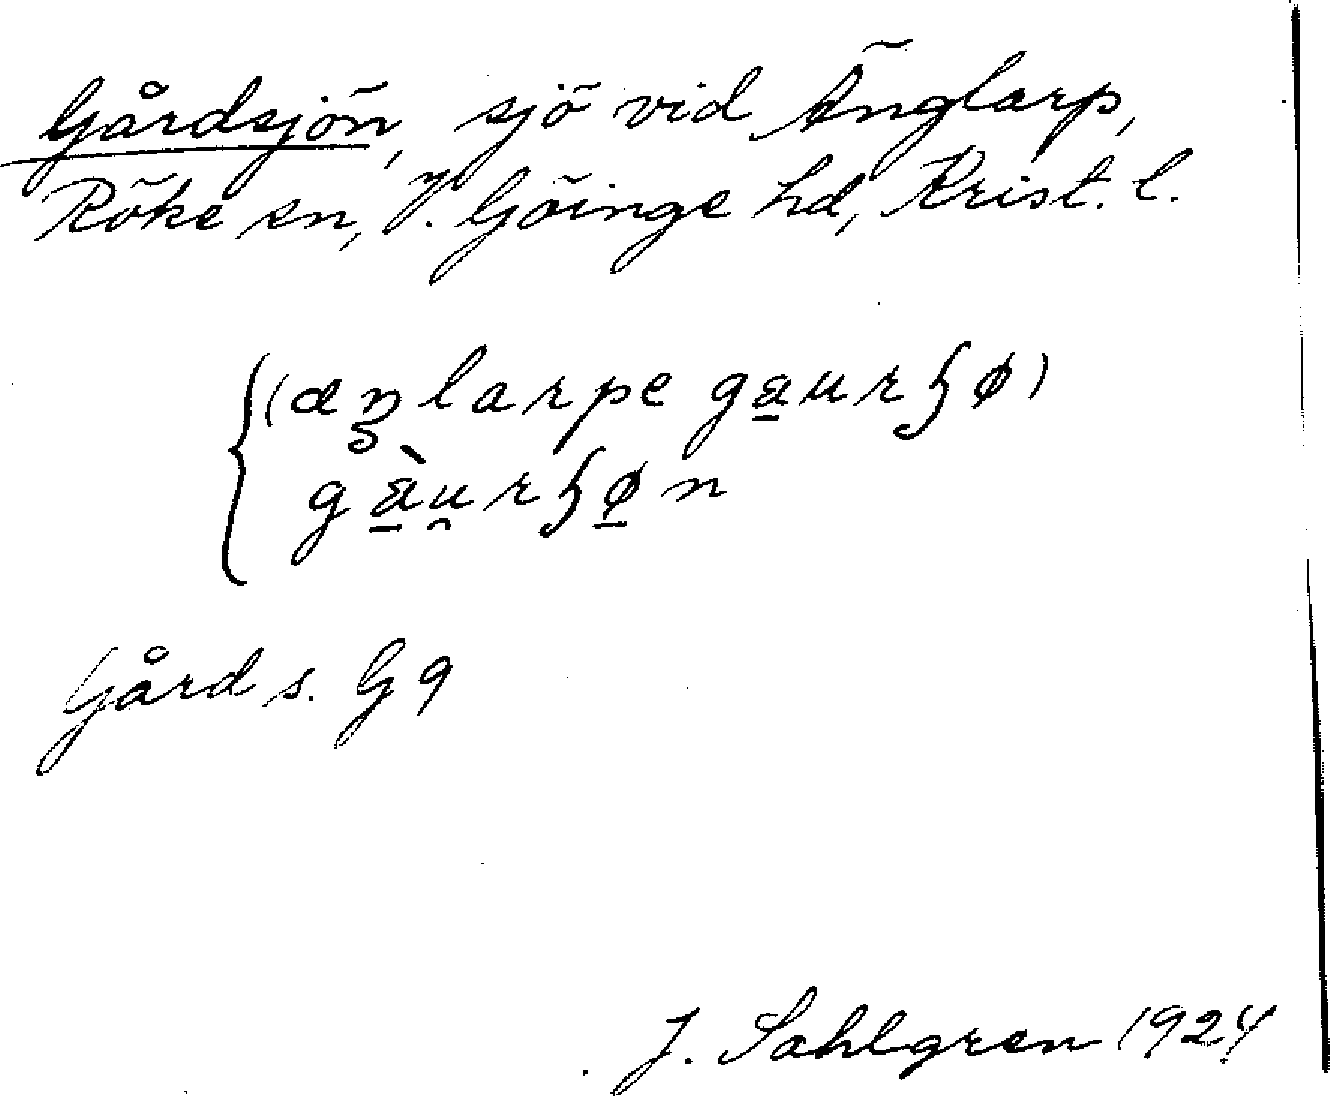 Gårdsjön, sjö vid Änglarp,
Röke sn, V. Göinge hd, Krist. l.
(æŋlarpe ga̱urɧø)
gà̱u̯rɧø̱n
Gård s. G 9
J. Sahlgren 1924